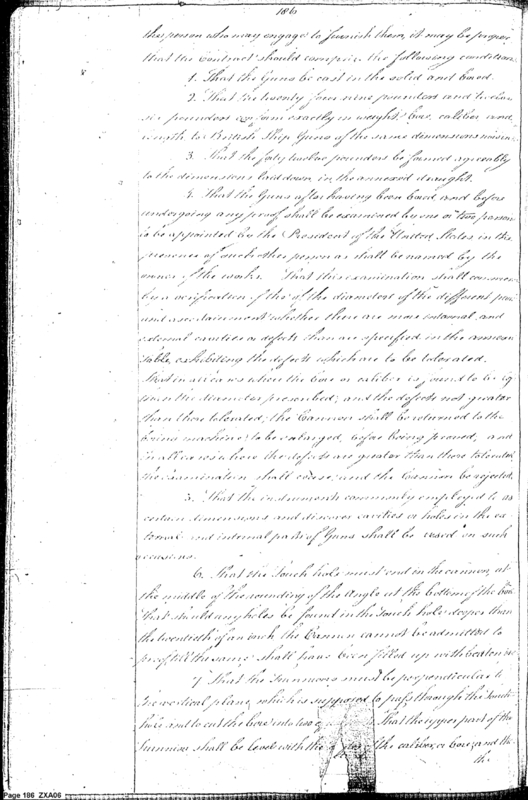 186
the person who may engage to furnish them, it may be proper
that the Contract should comprise the following conditions
1. That the Guns be cast in the solid and bored.
2. That the twenty four nine pounders and twelve
six pounders conform exactly in weight bore, caliber and
length to British Ship Guns of the same dimensions
3. That the forty twelve pounders be formed agreeably
to the dimensions laid down in the annexed draught.
4. That the Guns after having been bored and before
undergoing any proof shall be examined by one or two persons
to be appointed by the President of the United States in the
presence of such other person as shall be named by the
owner of the works. That this examination shall commence
by a verification of the of the diameters of the different
and ascertainment whether there are more internal and
external cavities or defects than are specified in the annexed
Table exhibiting the defects which are to be tolerated.
That in all cases when the bore or caliber is found to be
than the diameter prescribed; and the defects not greater
than those tolerated; the Cannon shall be returned to the
boring machine; to be enlarged, before being proved, and
in all cases where the defects are greater than those tolerated
the examination shall cease; and the Cannon be rejected.
5. That the instruments commonly employed to as
certain dimensions and discover cavities or holes in the ex
ternal and internal parts of Guns shall be used on such
occasions.
6. That the Touch hole must end in the cannon, at
the middle of the rounding of the Angle at the bottom of the bore
that should any holes be found in the Touch hole deeper than
the twentieth of an inch the Cannon cannot be admitted to
proof till the same shall have been filled up with beaten
7. That the Trunnions must be perpendicular to
the vertical plane, which is supposed to pass through the Touch
hole and to cut the bore into two That the upper part of the
Trunnions shall be level with the of the caliber or bore; and the
the
Page 186 ZXA06